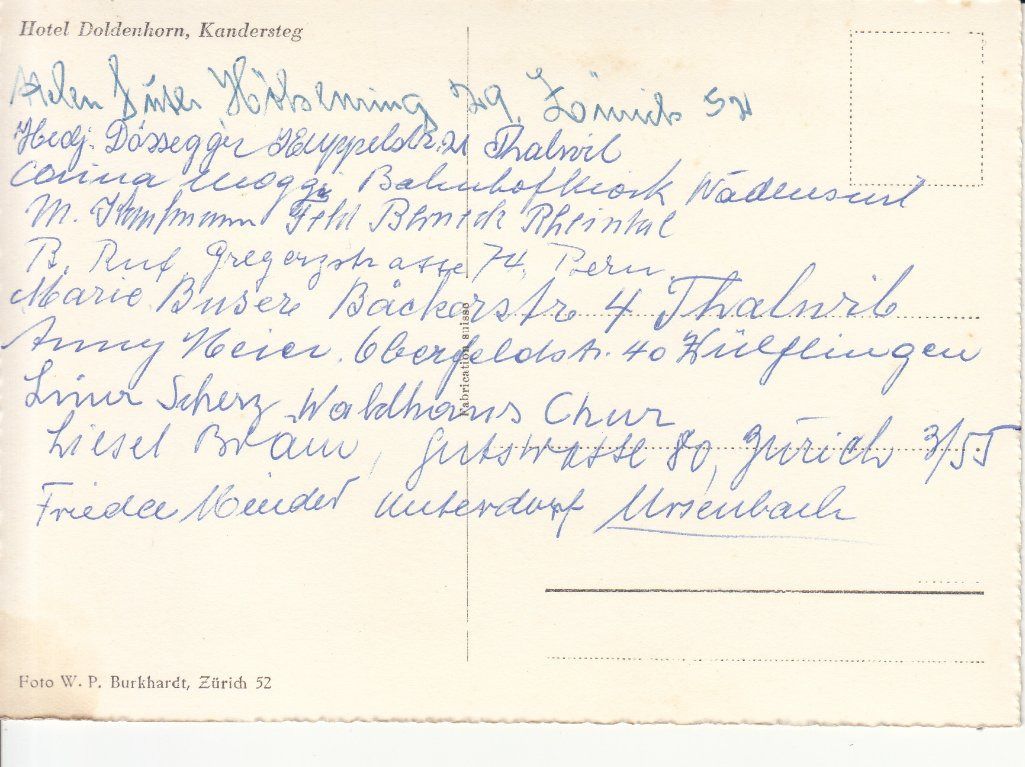 Hotel Doldenhorn, Kandersteg
29, Zürich 52
Hedj. Dössegger 21 Thalwil
Corina Moggi Bahnhofkiosk Wädenswil
M. Kaufmann Feld Berneck Rheintal
B. Ruf, Gregerzstrasse 74, Bern.
Marie Buser Bäckerstr 4 Thalwil
Anny Meier, Oberfeldstr. 40 Wülflingen
Lina Scherz Waldhaus Chur
Liesel Bräm, Gutstrasse 80, Zürich 3/55
Frieda Minder Unterdorf Ursenbach
Fabrication suisse
Foto W. P. Burkhardt, Zürich 52